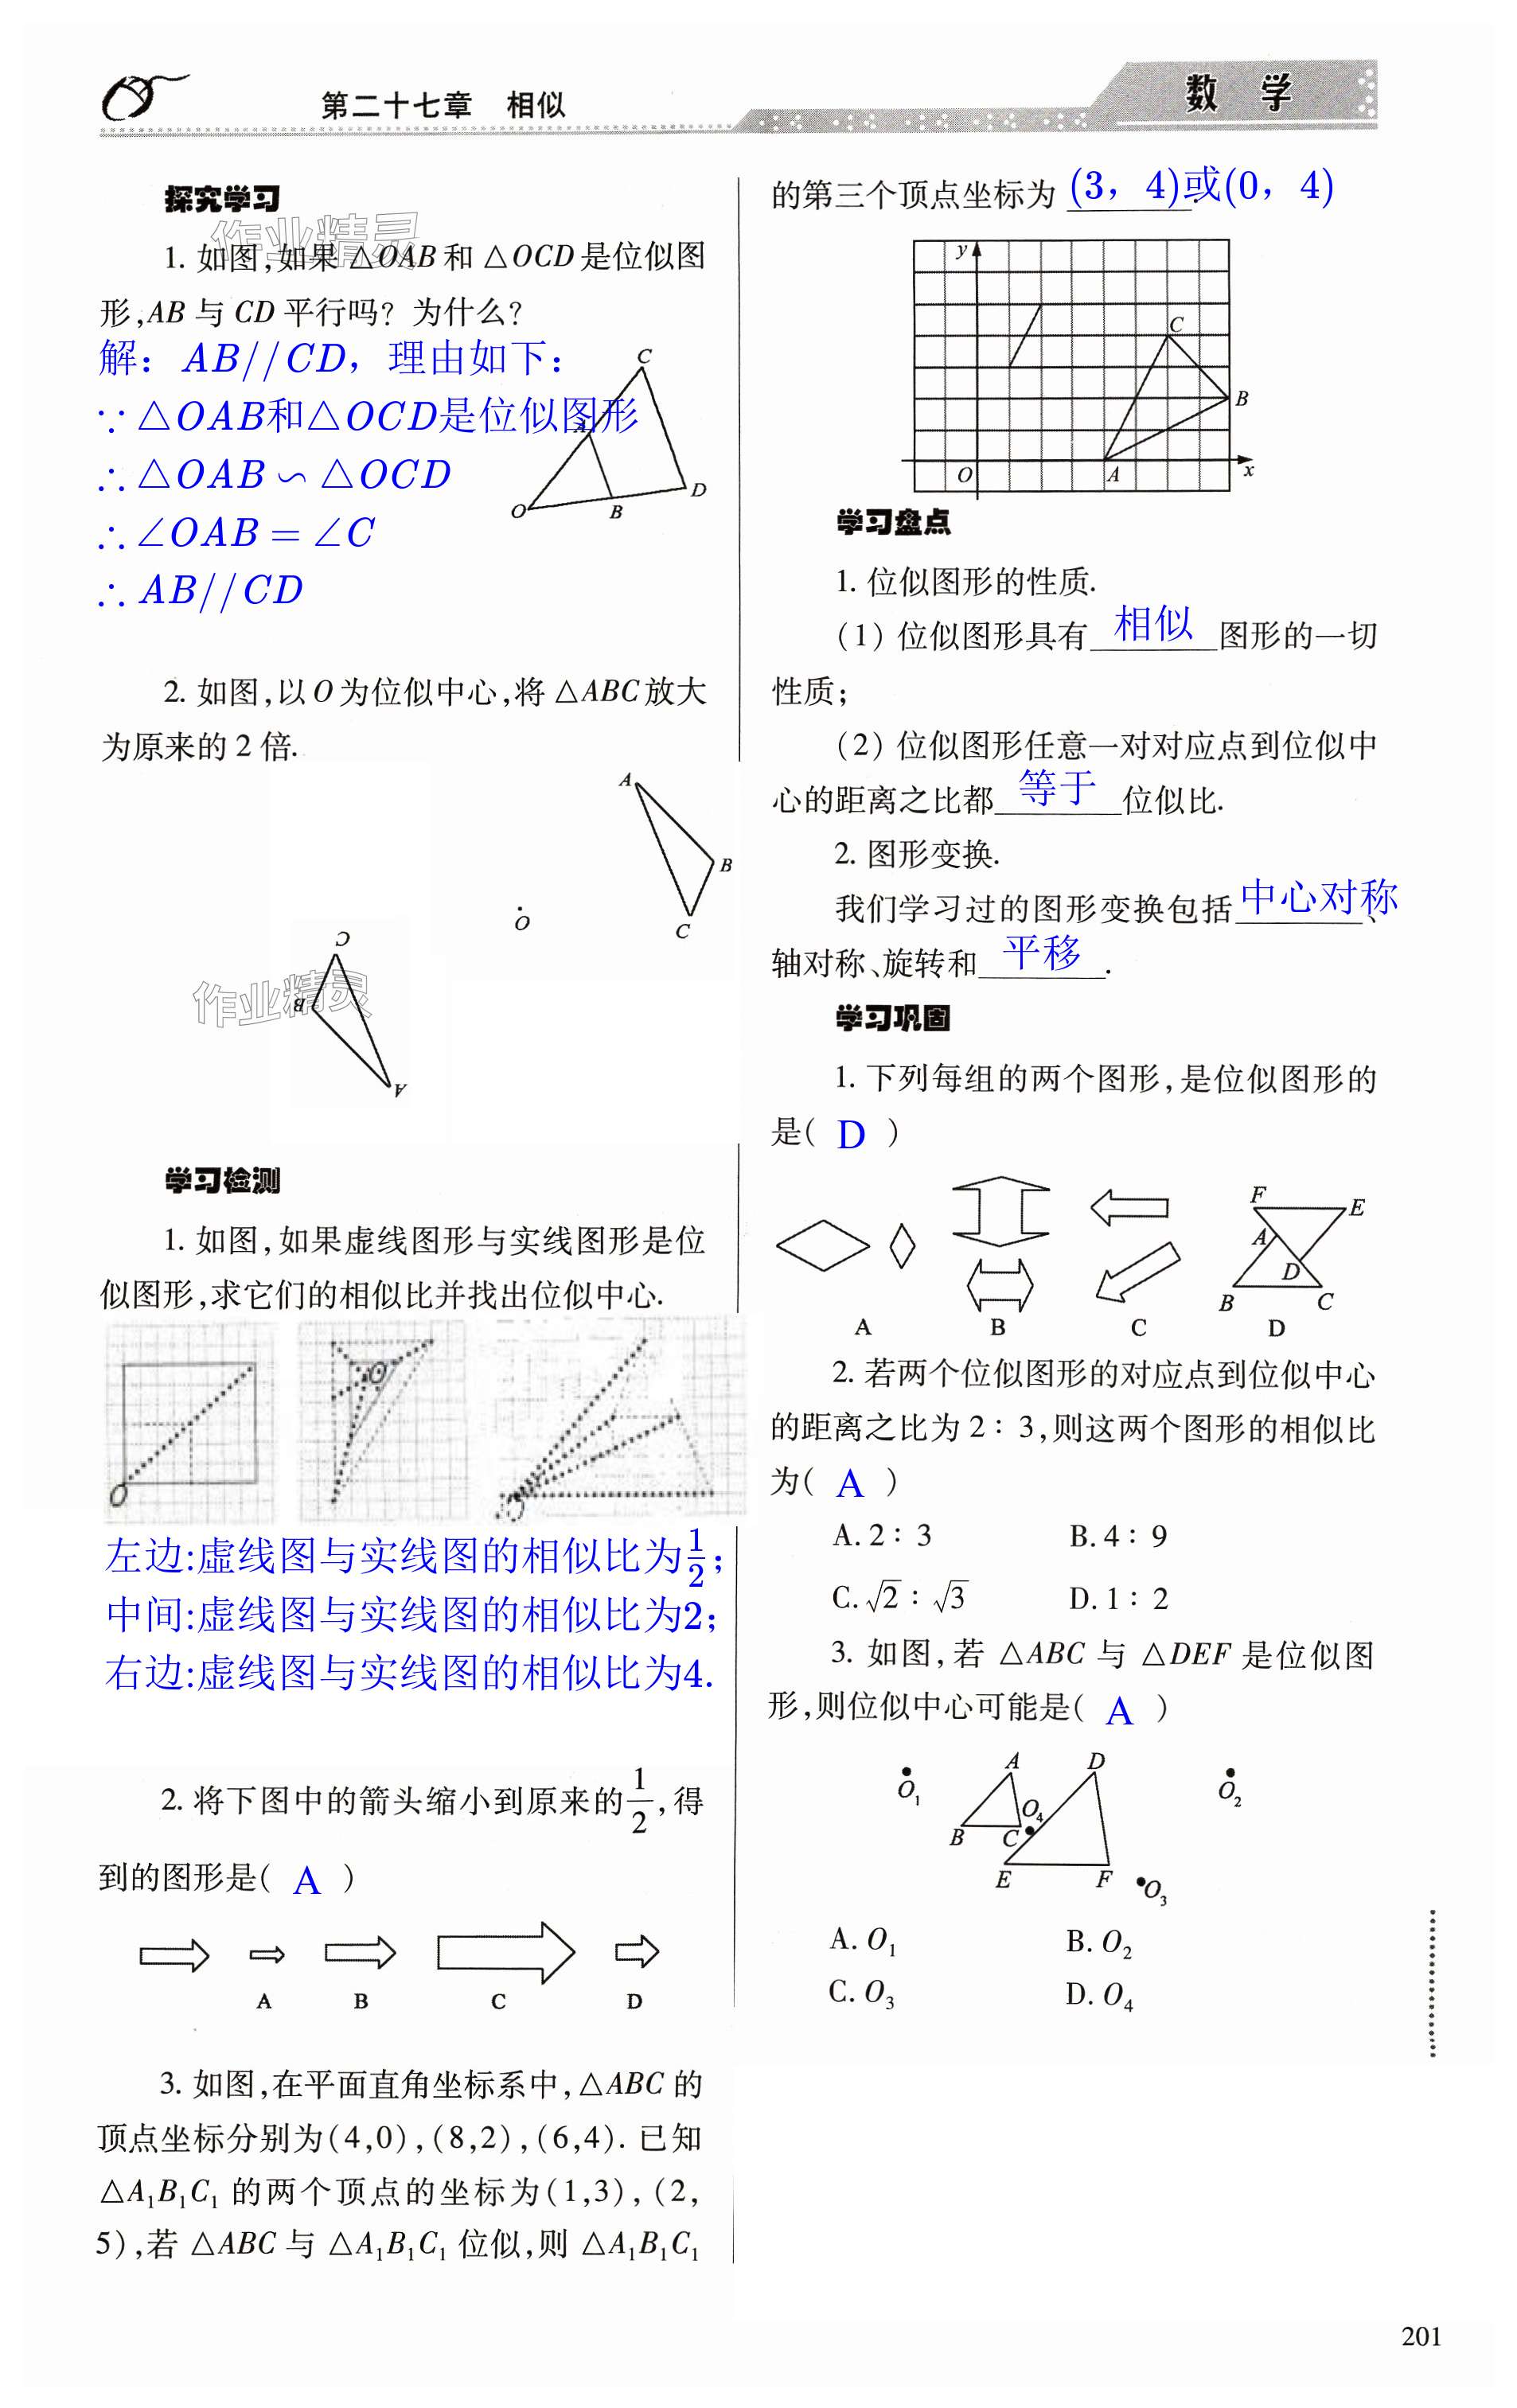 第二十七章 相似
数 学
探究学习
1. 如图,如果 △OAB 和 △OCD 是位似图
形,AB 与 CD 平行吗? 为什么?
解: AB//CD, 理由如下:
∵ △OAB和△OCD是位似图形
∴ △OAB ∽ △OCD
∴ ∠OAB = ∠C
∴ AB//CD
C
A
O
B
D
2. 如图,以 O 为位似中心,将 △ABC 放大
为原来的 2 倍.
A
B
C
O
C
B
A
作业精灵
作业精灵
学习检测
1. 如图,如果虚线图形与实线图形是位
似图形,求它们的相似比并找出位似中心.
O
O
O
左边:虚线图与实线图的相似比为1/2;
中间:虚线图与实线图的相似比为2;
右边:虚线图与实线图的相似比为4.
2. 将下图中的箭头缩小到原来的1/2,得
到的图形是( A )
A B C D
3. 如图,在平面直角坐标系中,△ABC 的
顶点坐标分别为(4,0),(8,2),(6,4). 已知
△A₁B₁C₁ 的两个顶点的坐标为(1,3),(2,
5),若 △ABC 与 △A₁B₁C₁ 位似,则 △A₁B₁C₁
的第三个顶点坐标为 (3, 4)或(0, 4).
y
C
B
O
A
x
学习盘点
1. 位似图形的性质.
(1) 位似图形具有 相似 图形的一切
性质;
(2) 位似图形任意一对对应点到位似中
心的距离之比都 等于 位似比.
2. 图形变换.
我们学习过的图形变换包括 中心对称、
轴对称、旋转和 平移 .
学习巩固
1. 下列每组的两个图形,是位似图形的
是( D )
F
E
A
D
B
C
A B C D
2. 若两个位似图形的对应点到位似中心
的距离之比为 2∶3,则这两个图形的相似比
为( A )
A. 2∶3 B. 4∶9
C. √2∶√3 D. 1∶2
3. 如图,若 △ABC 与 △DEF 是位似图
形,则位似中心可能是( A )
A
D
O₁
O₂
O₄
B
C
E
F
O₃
A. O₁ B. O₂
C. O₃ D. O₄
201